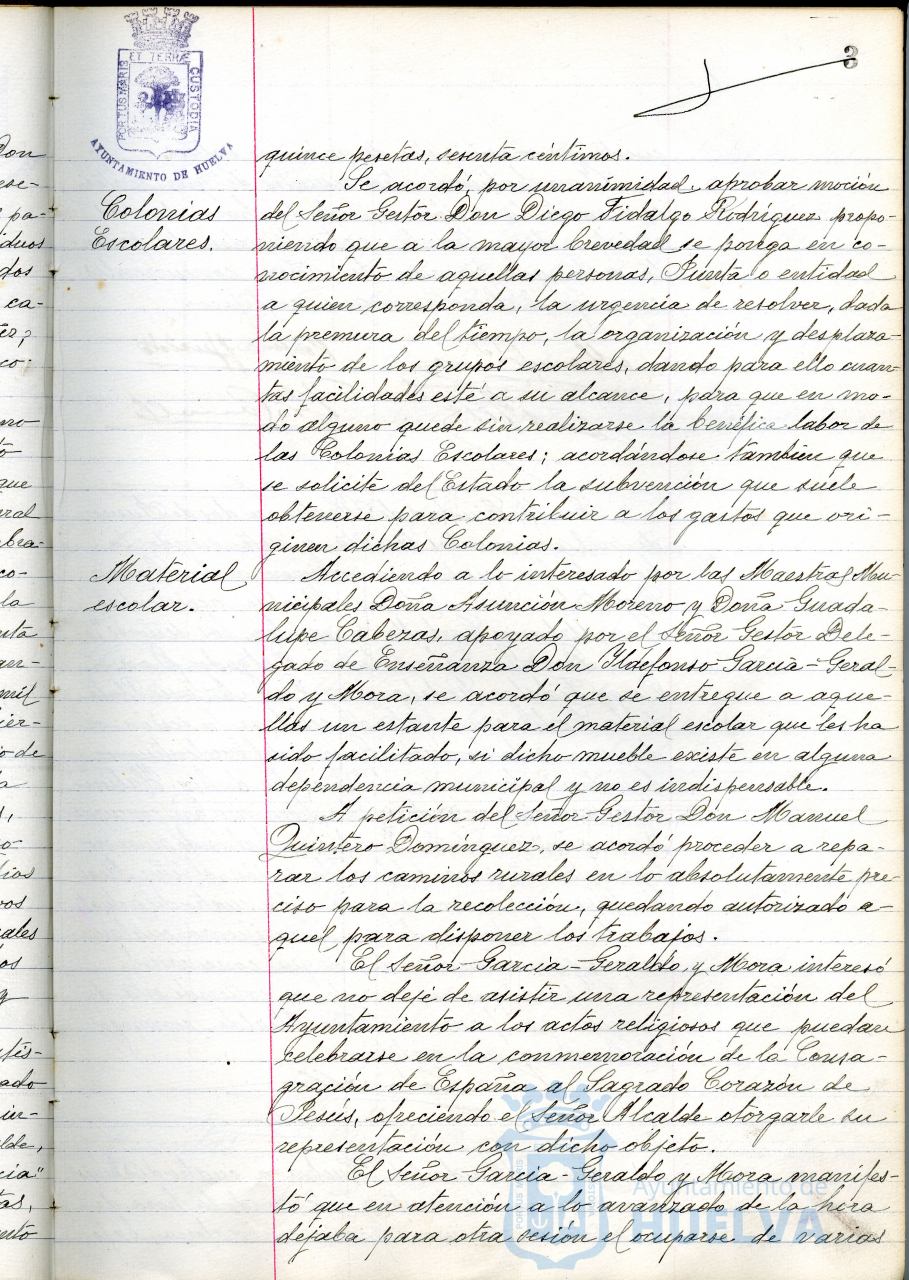 3
PORTUS MARIS ET TERRÆ CUSTODIA
AYUNTAMIENTO DE HUELVA
quince pesetas, sesenta céntimos.
Colonias
Escolares.
Se acordó, por unanimidad, aprobar moción
del Señor Gestor Don Diego Fidalgo Rodríguez propo-
niendo que a la mayor brevedad se ponga en co-
nocimiento de aquellas personas, Junta o entidad
a quien corresponda, la urgencia de resolver, dada
la premura del tiempo, la organización y desplaza-
miento de los grupos escolares, dando para ello cuan-
tas facilidades esté a su alcance, para que en mo-
do alguno quede sin realizarse la benéfica labor de
las Colonias Escolares; acordándose tambien que
se solicite del Estado la subvención que suele
obtenerse para contribuir a los gastos que ori-
ginen dichas Colonias.
Material
escolar.
Accediendo a lo interesado por las Maestras Mu-
nicipales Doña Asunción Moreno y Doña Guada-
lupe Cabezas, apoyado por el Señor Gestor Dele-
gado de Enseñanza Don Ildefonso García-Geral-
do y Mora, se acordó que se entregue a aque-
llas un estante para el material escolar que les ha
sido facilitado, si dicho mueble existe en alguna
dependencia municipal y no es indispensable.
A petición del Señor Gestor Don Manuel
Quintero Domínguez, se acordó proceder a repa-
rar los caminos rurales en lo absolutamente pre-
ciso para la recolección, quedando autorizado a-
quel para disponer los trabajos.
El Señor García-Geraldo y Mora interesó
que no deje de asistir una representación del
Ayuntamiento a los actos religiosos que puedan
celebrarse en la conmemoración de la Consa-
gración de España al Sagrado Corazón de
Jesús, ofreciendo el Señor Alcalde otorgarle su
representación con dicho objeto.
El Señor García-Geraldo y Mora manifes-
tó que en atención a lo avanzado de la hora
dejaba para otra sesión el ocuparse de varias
Ayuntamiento de
HUELVA